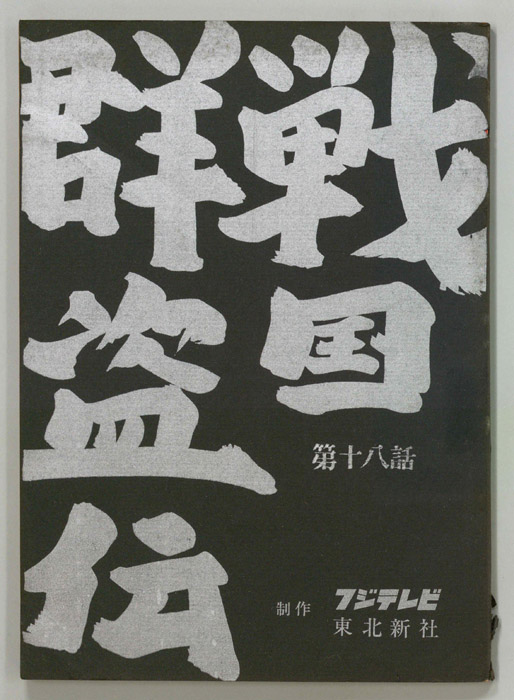 戦国
群盗伝
第十八話
制作 フジテレビ
東北新社